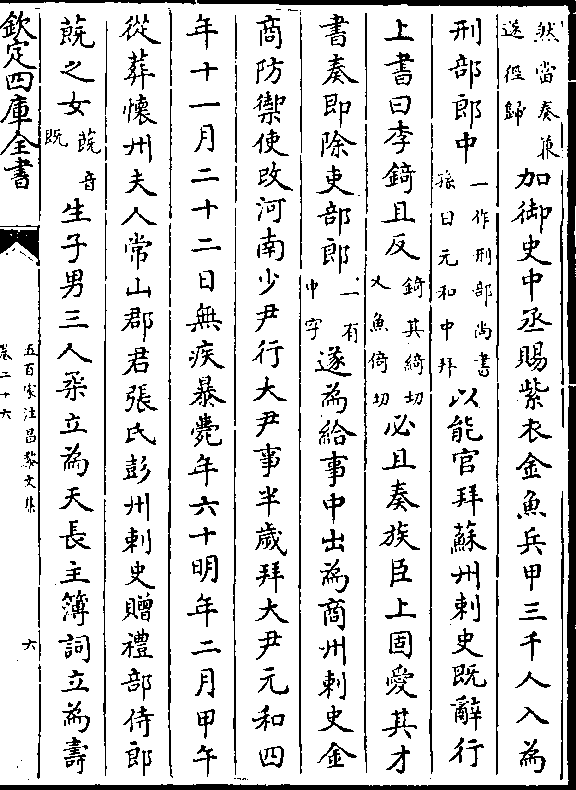 然當奏兼
送徑歸
加御史中丞賜紫衣金魚兵甲三千人入為
刑部郎中
一作刑部尚書
孫曰元和中拜
以能官拜蘇州刺史既辭行
上書曰李錡且反
錡其綺切
又魚倚切
必且奏族臣上固愛其才
書奏即除吏部郎
一有
中字
遂為給事中出為商州刺史金
商防禦使改河南少尹行大尹事半歲拜大尹元和四
年十一月二十二日無疾暴薨年六十明年二月甲午
從葬懷州夫人常山郡君張氏彭州刺史贈禮部侍郎
蔇之女
蔇音
既
生子男三人柔立為天長主簿詞立為壽
欽定四庫全書
五百家注昌黎文集
卷二十六
六